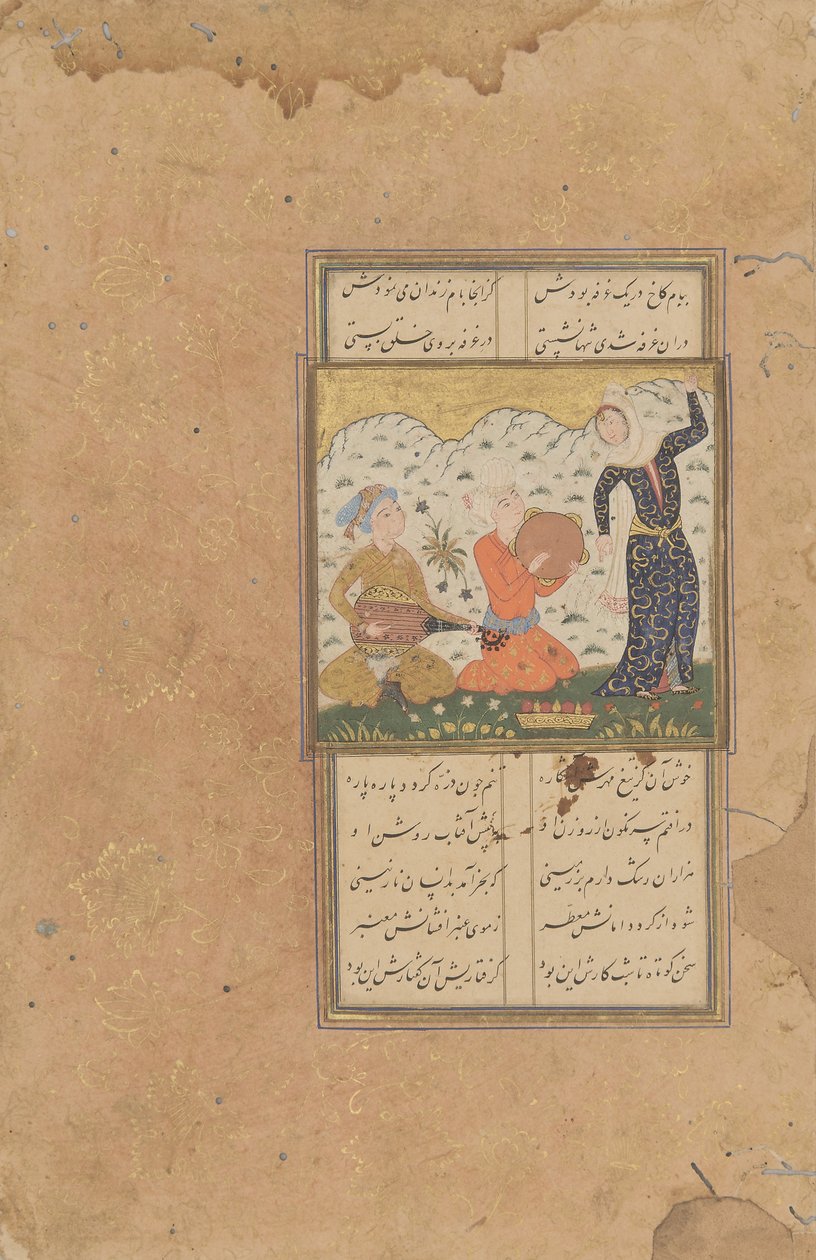 ببام کاخ در یک غرفه بودش کز انجا بام زندان می نمودش
دران غرفه شدی تنها نشستی در غرفه بروی خلق بستی
خوش آن کز تیغ مهرش تنم چون ذره گردد پاره پاره
در افتم سرنگون از روزن او به پیش آفتاب روشن او
هزاران رشک دارم بر زمینی که بخرامد بدانسان نازنینی
شود از گرد دامانش معطر ز موی عنبر افشانش معنبر
سخن کوتاه تا شب کارش این بود گرفتاریش آن گفتارش این بود